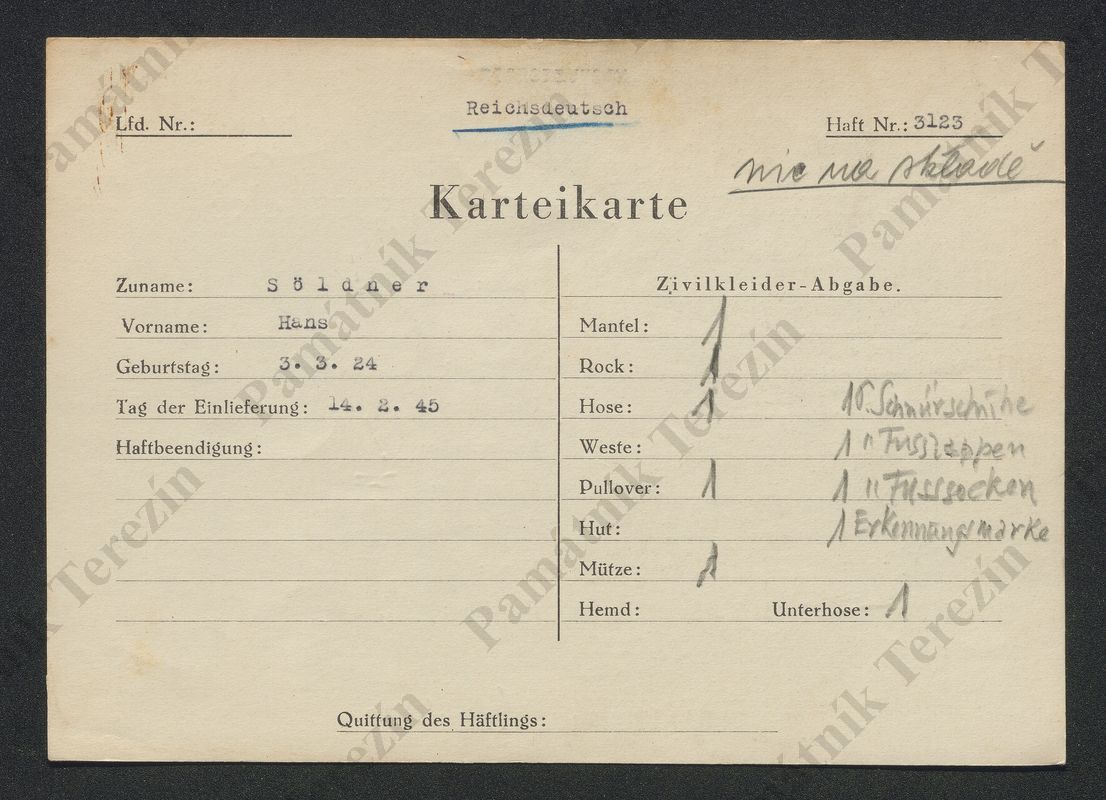 Reichsdeutsch
Lfd. Nr.:
Haft Nr.: 3123
nic na skladě
Karteikarte
Zuname: Söldner
Vorname: Hans
Geburtstag: 3. 3. 24
Tag der Einlieferung: 14. 2. 45
Haftbeendigung:
Zivilkleider-Abgabe.
Mantel: 1
Rock: 1
Hose: 1 1 P. Schnürschuhe
Weste: 1 " Fusslappen
Pullover: 1 1 " Fusssocken
Hut: 1 Erkennungsmarke
Mütze: 1
Hemd: Unterhose: 1
Quittung des Häftlings:
Památník Terezín
Památník Terezín
Památník Terezín
Památník Terezín
Památník Terezín